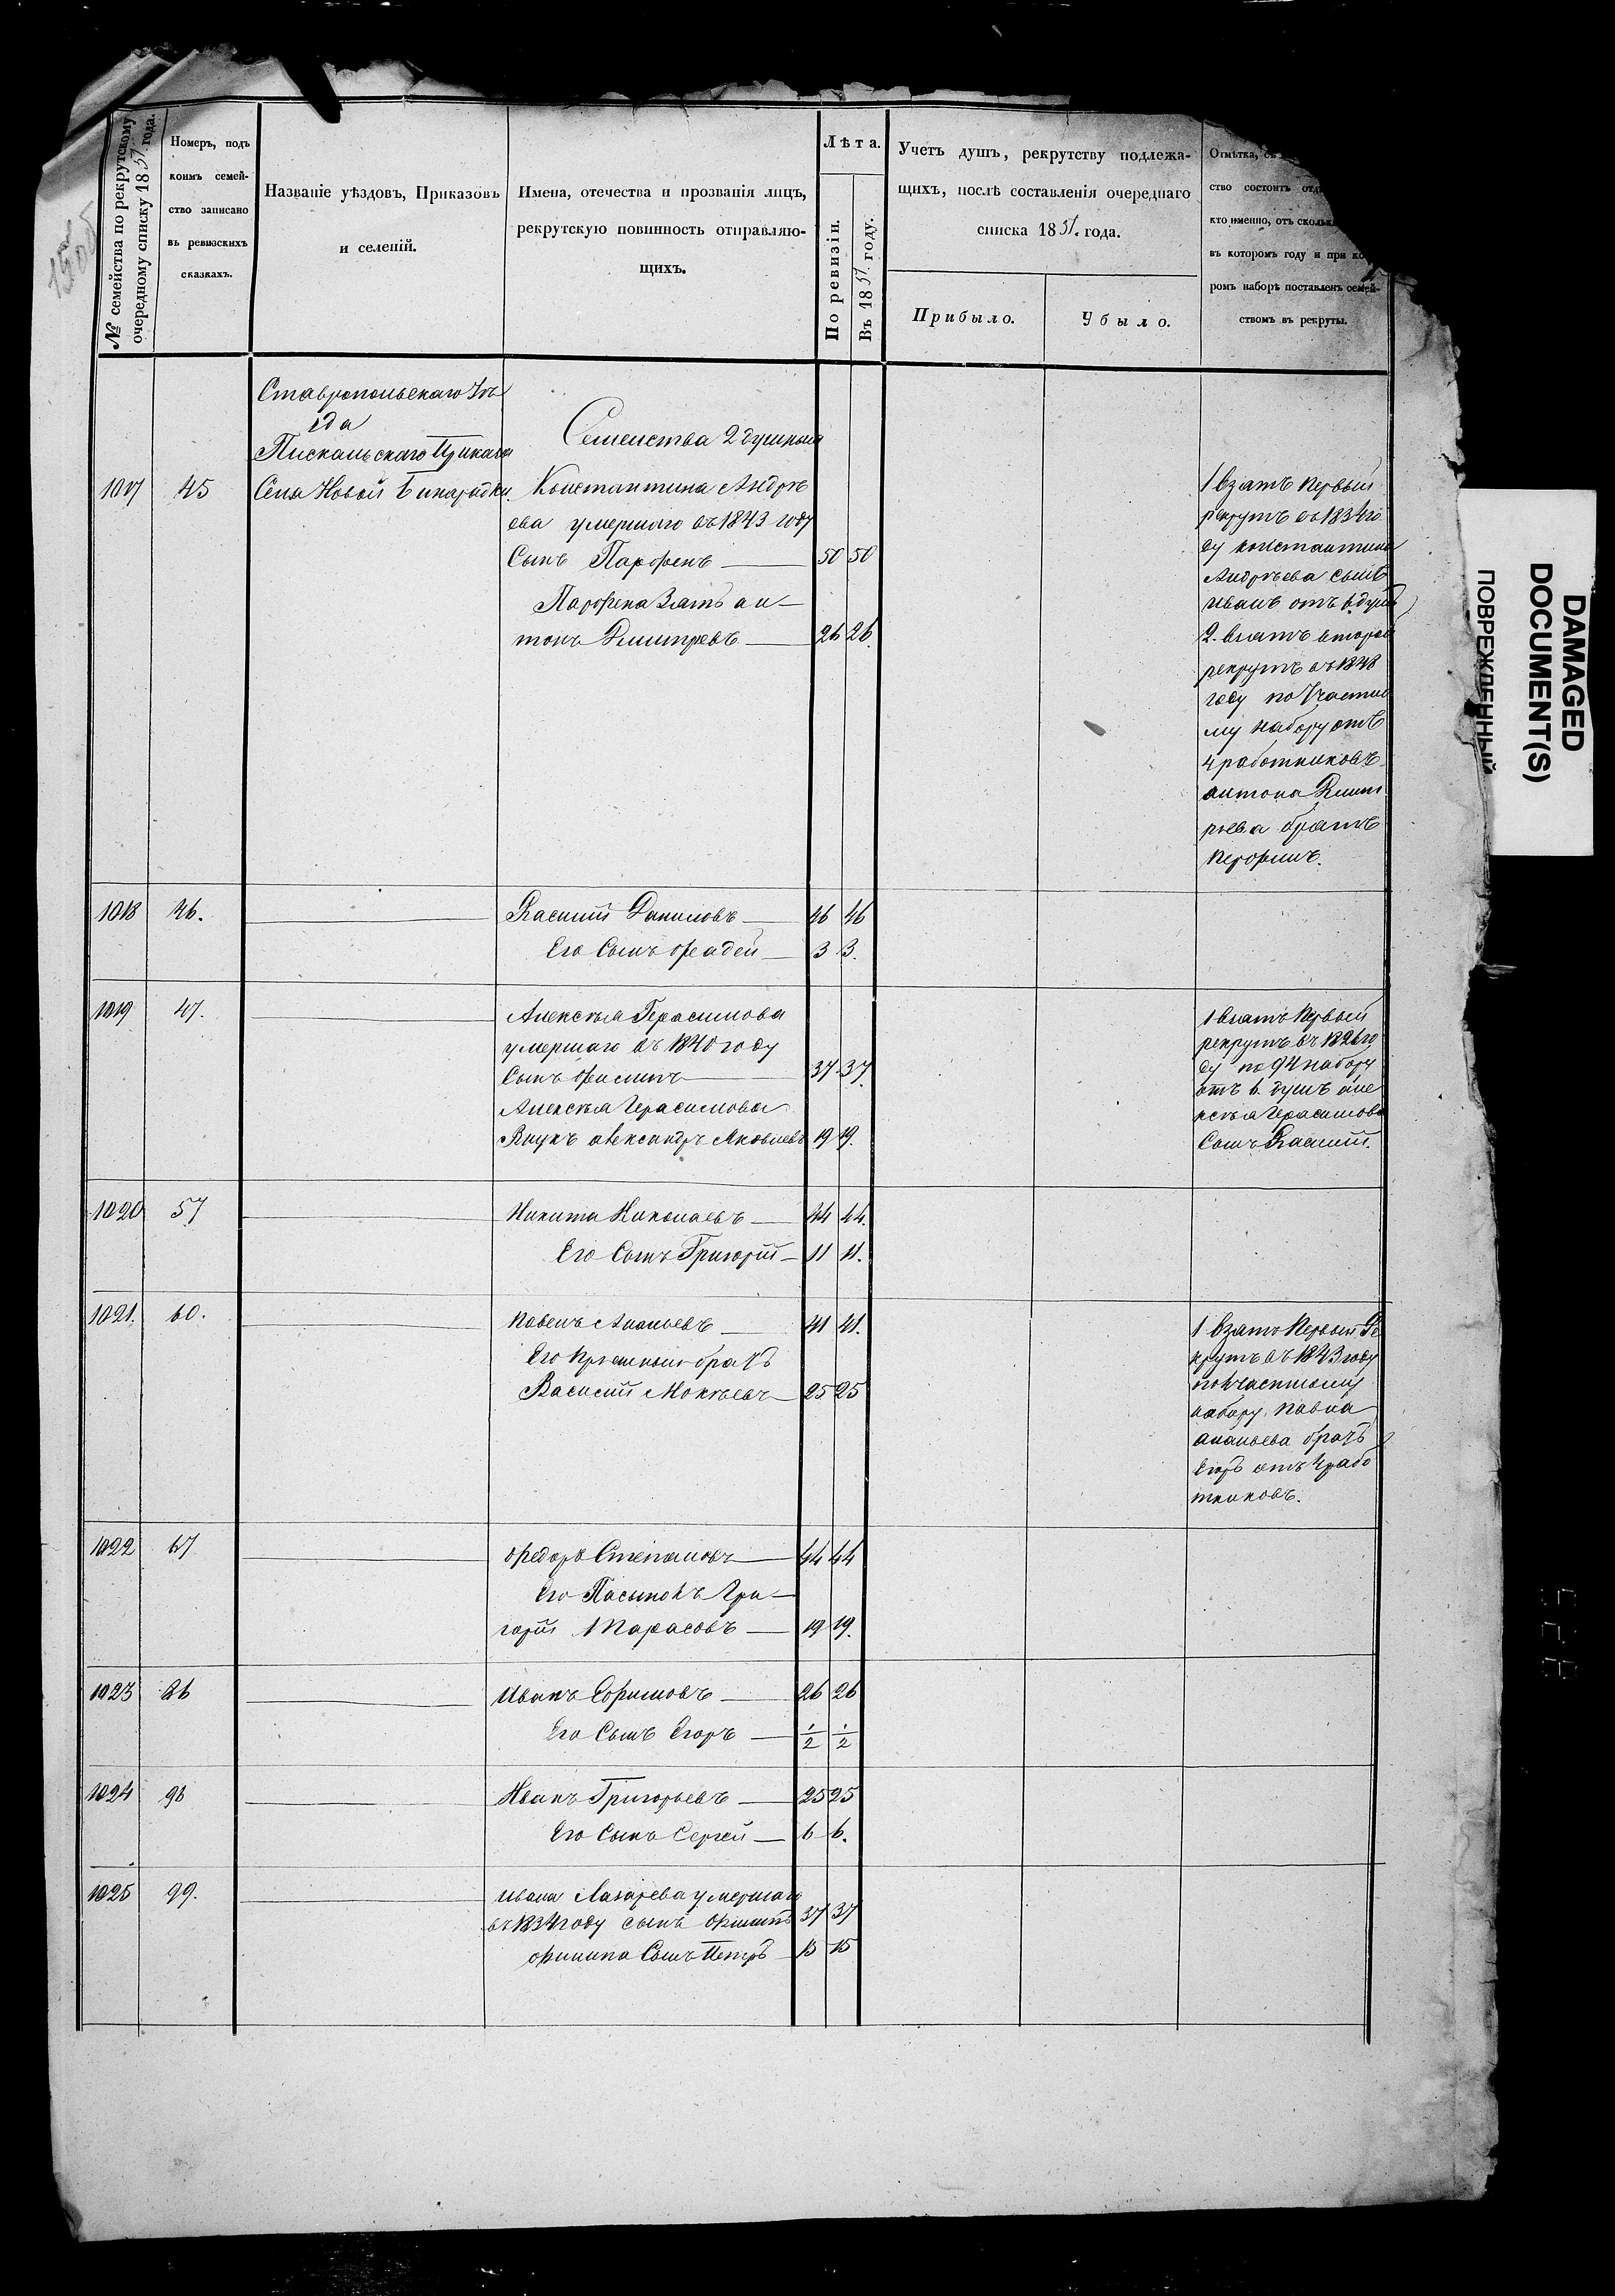 № семейства по рекрутскому
очередному списку 1851 года.
Номеръ, подъ
коимъ семей-
ство записано
въ ревизскихъ
сказкахъ.
Названіе уѣздовъ, Приказовъ
и селеній.
Имена, отечества и прозванія лицъ,
рекрутскую повинность отправляю-
щихъ.
Лѣта.
По ревизіи.
Въ 1851 году.
Учетъ душъ, рекрутству подлежа-
щихъ, послѣ составленія очереднаго
списка 1851. года.
Прибыло.
Убыло.
Отмѣтка,
ство состоитъ
кто именно, отъ
въ которомъ году и при ко
ромъ наборѣ поставленъ семей-
ствомъ въ рекруты.
Ставропольскаго Уѣ
зда
Пискальскаго Приказа
Семейства 2 душныя
1017 45 Села Новой Бинарадки. Константина Андрѣ
ева умершаго въ 1843 году
Сынъ Парфенъ 50 50
Парфена Зять ан
тонъ Дмитревъ 26 26.
1 взятъ первый
рекрутъ въ 1834 го
ду константина
Андрѣева сынъ
иванъ отъ 6 душъ
2. взятъ второй
рекрутъ въ 1848
году по Участно
му набору отъ
4 работниковъ
антона Дмит
рьева братъ
1018 46. Василій Даниловъ 46 46
Его Сынъ Фадей 3 3.
1019 47. Алексѣя Герасимова
умершаго въ 1840 году
Сынъ Филипъ 37 37.
Алексѣя Герасимова
Внукъ александръ Яковлевъ 19 19.
1 взятъ первый
рекрутъ въ 1826 го
ду по 94 набору
отъ 6. душъ але
ксѣя Герасимова
Сынъ Василій.
1020 57 Никита Николаевъ 44 44.
Его Сынъ Григорій 11 11.
1021. 60. Павелъ Ананьевъ 41 41.
Василій Мокѣевъ 25 25
1 взятъ первый Ре
крутъ въ 1843 году
по Участному
набору. Павла
ананьева братъ
Егоръ отъ 4 рабо
тниковъ.
1022 67 Федоръ Степановъ 44 44
Его Пасынокъ Гри
горій Тарасовъ 19 19.
1023 86 Иванъ Ефимовъ 26 26
Его Сынъ Егоръ 1/2 1/2
1024 96 Иванъ Григорьевъ 25 25
Его Сынъ Сергей 6 6.
1025 99. Ивана Лазарева умершаго
въ 1834 году сынъ Филипъ 37 37
Филипа Сынъ Петръ 15 15
DAMAGED
DOCUMENT(S)
ПОВРЕЖДЕННЫЙ